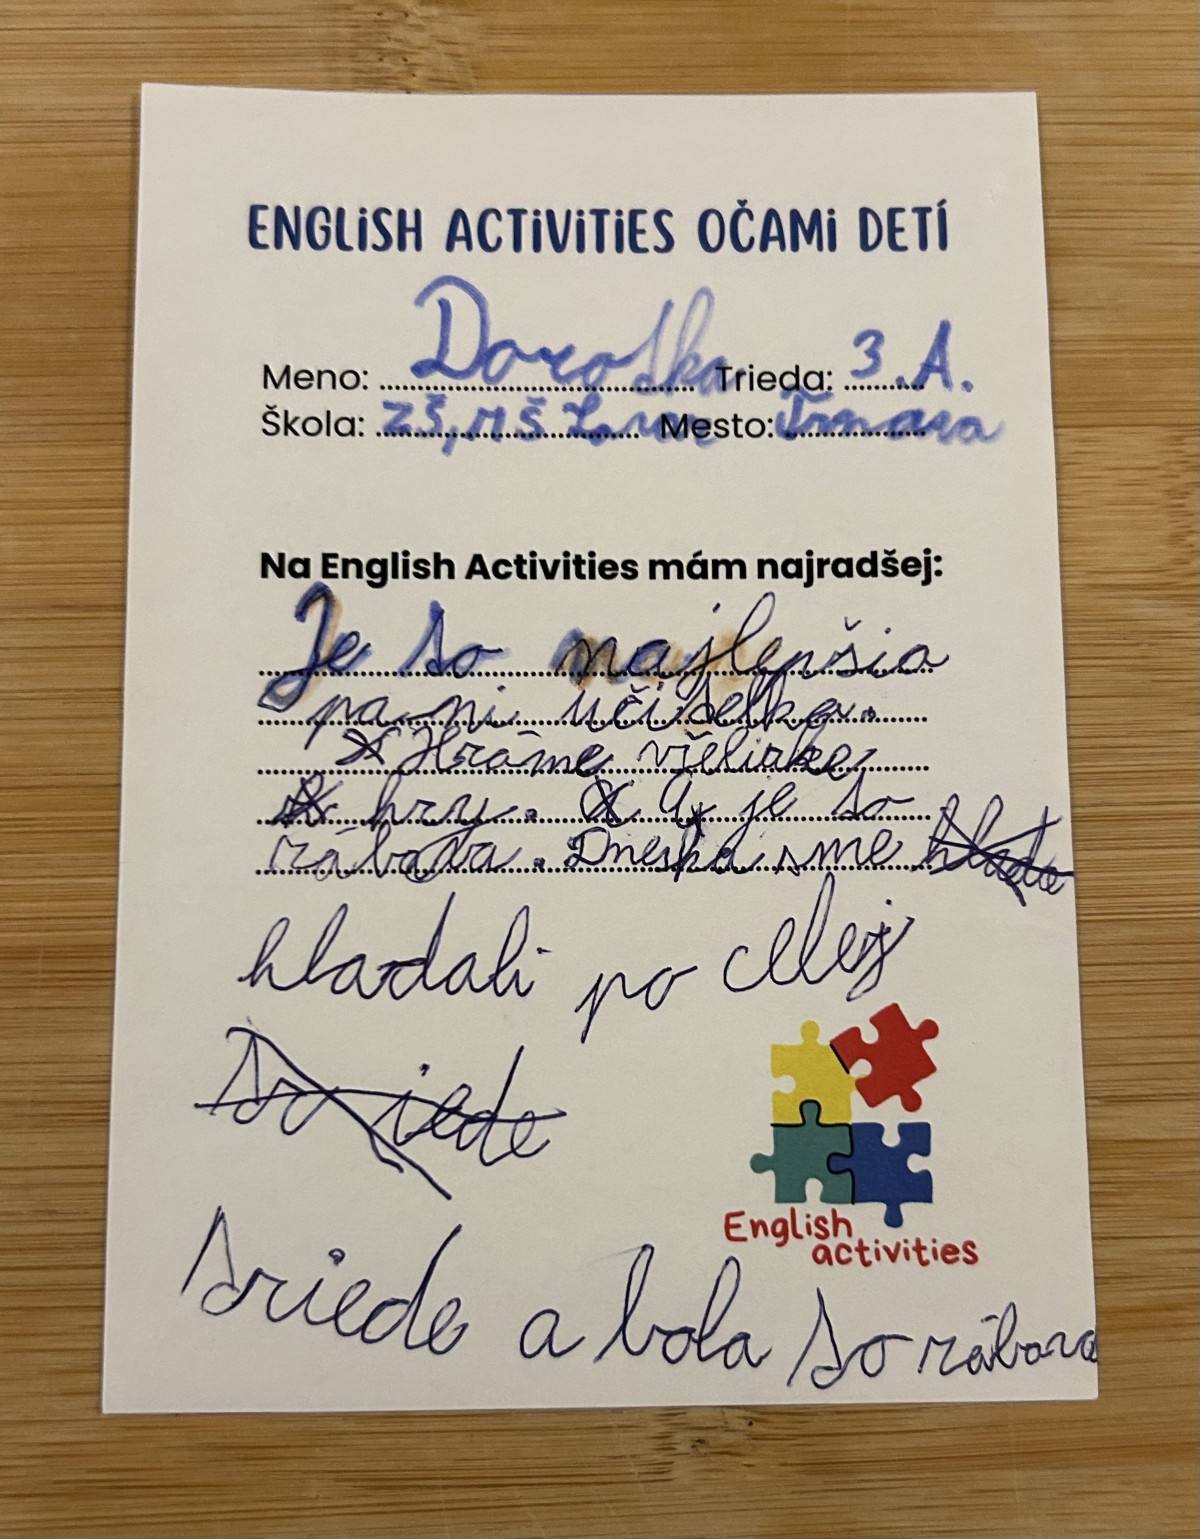 ENGLISH ACTIVITIES OČAMI DETÍ
Meno: Dorotka Trieda: 3.A.
Škola: ZŠ, MŠ Mesto: Trnava
Na English Activities mám najradšej:
Je to najlepšia
pani učitelka.
Hráme všeliake
hry. A je to
zábava. Dneska sme
hladali po celej
triede a bola to zábava
English
activities